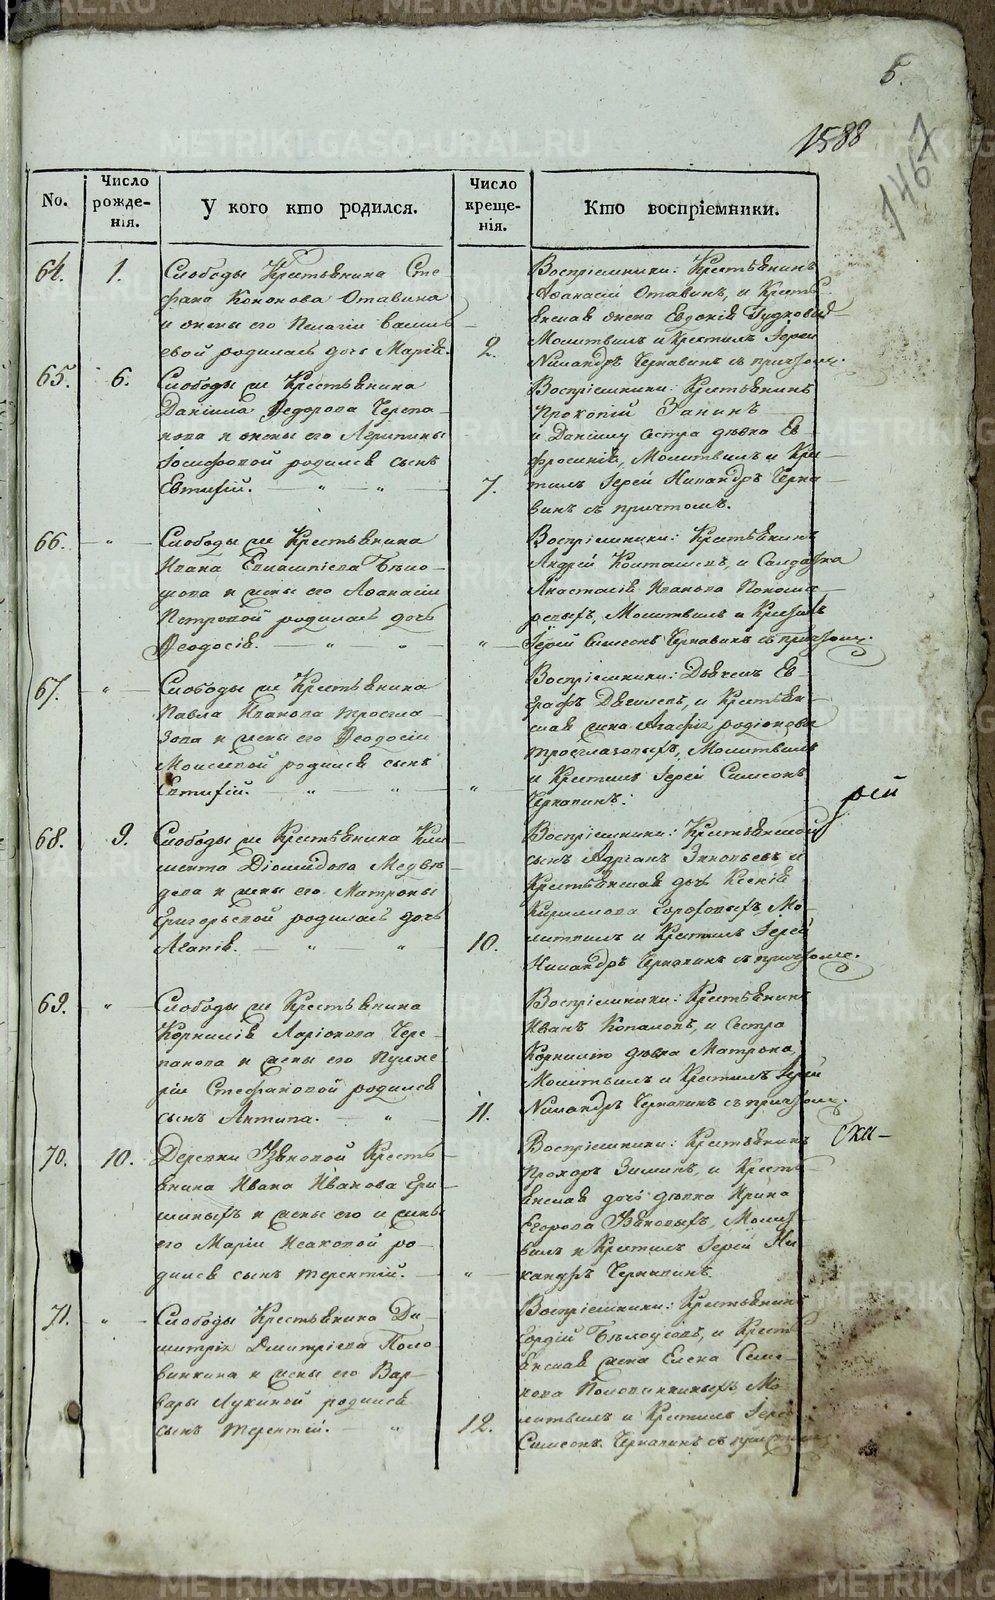 5.
1588
1467
No.
Число рожде-нiя.
У кого кто родился.
Число креще-нiя.
Кто воспрiемники.
64.
1.
Слободы Крестьянина Сте-
фана Кононова Отавина
и жены его Пелагiи Василь-
евой родилась дочь Марiя.
2.
Воспрiемники: Крестьянинъ
Афанасiй Отавинъ, и Кресть-
янская жена Евдокiя
Молитвилъ и Крестилъ Iерей
Никандръ Чернавинъ съ причтомъ.
65.
6.
Слободы же Крестьянина
Данiила Ѳедорова Черепа-
нова и жены его Агрипины
Iосифовой родился сынъ
Евтифiй. — " — " —
7.
Воспрiемники: Крестьянинъ
Прокопiй Занинъ
и Данiилу сестра дѣвка Ев-
фросинiя, Молитвилъ и Кре-
стилъ Iерей Никандръ Черна-
винъ съ причтомъ.
66.
"
Слободы же Крестьянина
Ивана Бѣло-
и жены его Афанасiи
Петровой родилась дочь
Ѳеодосiя. — " — " —
"
Воспрiемники: Крестьянинъ
Андрей и Солдатка
Анастасiя Иванова Понома-
ревыхъ, Молитвилъ и Крестилъ
Iерей Симеонъ Чернавинъ съ причтомъ.
67.
"
Слободы же Крестьянина
Павла Иванова Троегла-
зова и жены его Ѳеодосiи
Моисеевой родился сынъ
Евтифiй. — " — " —
"
Воспрiемники: Дьячекъ Ев-
графъ и Крестьян-
ская жена Агафiя Родiонова
Троеглазовыхъ, Молитвилъ
и Крестилъ Iерей Симеонъ
Чернавинъ.
рей
68.
9.
Слободы же Крестьянина Кли-
мента Дiомидова Медвѣ-
дева и жены его Матроны
Григорьевой родилась дочь
Агапiя. — " — " —
10.
Воспрiемники: Крестьянской
сынъ Адрiанъ Зиновьевъ и
Крестьянская дочь Ксенiя
Кирилова Мо-
литвилъ и Крестилъ Iерей
Никандръ Чернавинъ съ причтомъ.
69.
"
Слободы же Крестьянина
Корнилiя Ларiонова Чере-
панова и жены его Пулхе-
рiи Стефановой родился
сынъ Антипа. — " —
11.
Воспрiемники: Крестьянинъ
Иванъ Коноловъ, и Сестра
Корнилiю дѣвка Матрона,
Молитвилъ и Крестилъ Iерей
Никандръ Чернавинъ съ причтомъ.
70.
10.
Деревни Крестья-
янина Ивана Иванова
и жены его
его Марiи Исаковой ро-
дился сынъ Терентiй. —
"
Воспрiемники: Крестьянинъ
Прохоръ Зиминъ, и Кресть-
янская дочь дѣвка Ирина
Егорова Молит-
вилъ и Крестилъ Iерей Ни-
кандръ Чернавинъ.
71.
"
Слободы Крестьянина Ди-
митрiя Дмитрiева Поло-
винкина и жены его Вар-
вары Лукиной родился
сынъ Терентiй. — "
12.
Воспрiемники: Крестьянинъ
Гордiй Бѣлоусовъ, и Кресть-
янская жена Елена Семе-
нова Половинкиныхъ, Мо-
литвилъ и Крестилъ Iерей
Симеонъ Чернавинъ съ причтомъ.